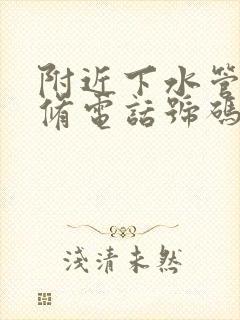 附近下水管
脩電話號碼
淺清未然